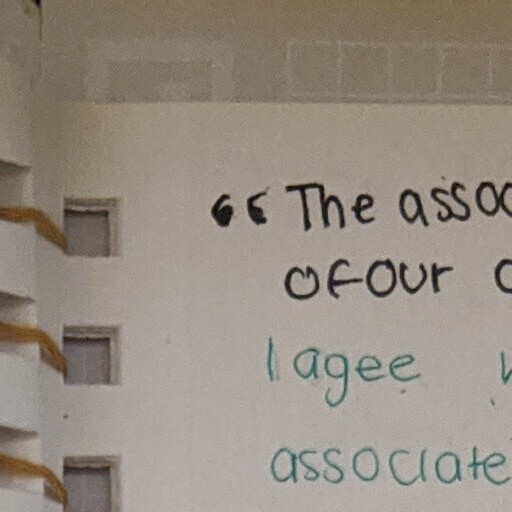 “The assoc
of our
I agee
associate